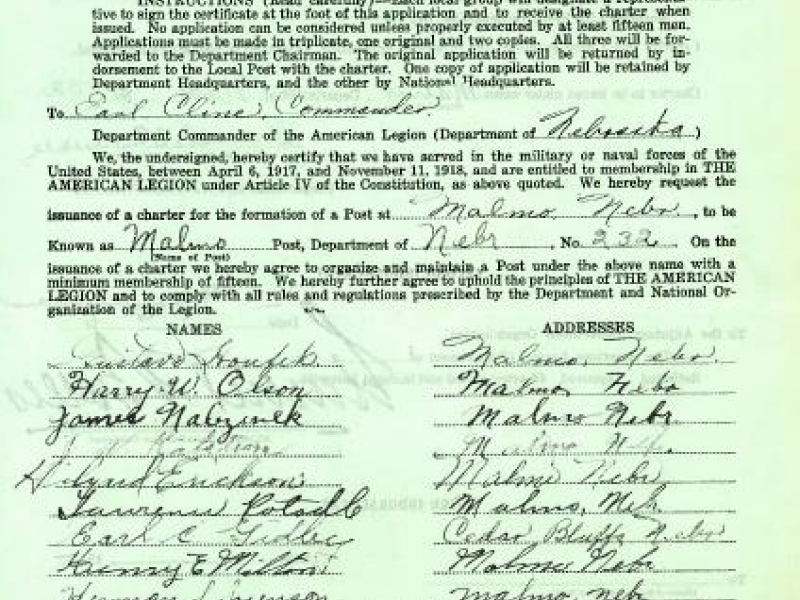 INSTRUCTIONS (Read carefully)—Each local group will designate a representa-
tive to sign the certificate at the foot of this application and to receive the charter when
issued. No application can be considered unless properly executed by at least fifteen men.
Applications must be made in triplicate, one original and two copies. All three will be for-
warded to the Department Chairman. The original application will be returned by in-
dorsement to the Local Post with the charter. One copy of application will be retained by
Department Headquarters, and the other by National Headquarters.
To Earl Cline, Commander.
Department Commander of the American Legion (Department of Nebraska)
We, the undersigned, hereby certify that we have served in the military or naval forces of the
United States, between April 6, 1917, and November 11, 1918, and are entitled to membership in THE
AMERICAN LEGION under Article IV of the Constitution, as above quoted. We hereby request the
issuance of a charter for the formation of a Post at Malmo, Nebr., to be
Known as Malmo Post, Department of Nebr, No. 232. On the
(Name of Post)
issuance of a charter we hereby agree to organize and maintain a Post under the above name with a
minimum membership of fifteen. We hereby further agree to uphold the principles of THE AMERICAN
LEGION and to comply with all rules and regulations prescribed by the Department and National Or-
ganization of the Legion.
NAMES ADDRESSES
Gustave Malmo, Nebr.
Harry W Olson Malmo Nebr
James Malmo Nebr.
Malmo
Erickson Malmo Nebr
Lawrence Malmo, Neb
Earl C Cedar Bluffs Nebr
Henry E Melton Malmo Nebr
Herman Malmo, nebr